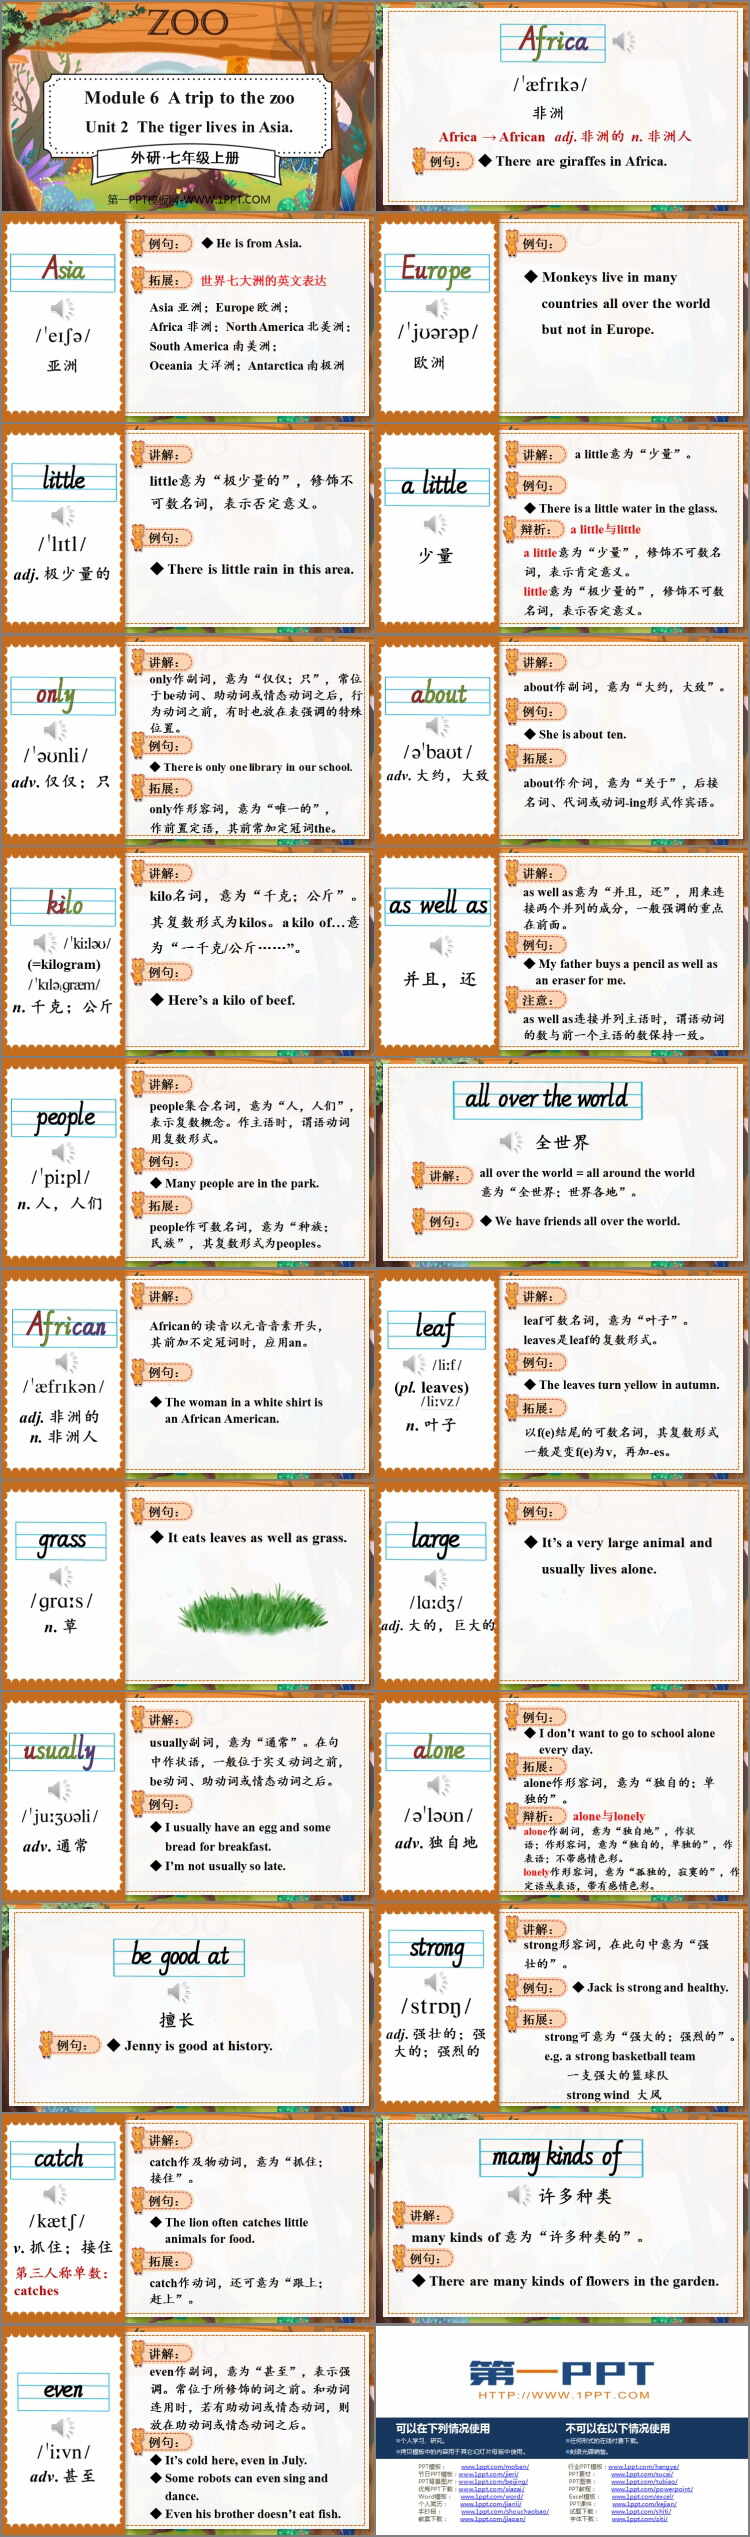 ZOO
Module 6 A trip to the zoo
Unit 2 The tiger lives in Asia.
外研·七年级上册
第一PPT模板网-WWW.1PPT.COM
Africa
/ˈæfrɪkə/
非洲
Africa → African adj. 非洲的 n. 非洲人
例句：
◆ There are giraffes in Africa.
Asia
/ˈeɪʃə/
亚洲
例句：
◆ He is from Asia.
拓展：
世界七大洲的英文表达
Asia 亚洲；Europe 欧洲；
Africa 非洲；North America 北美洲；
South America 南美洲；
Oceania 大洋洲；Antarctica 南极洲
Europe
/ˈjʊərəp/
欧洲
例句：
◆ Monkeys live in many
countries all over the world
but not in Europe.
little
/ˈlɪtl/
adj. 极少量的
讲解：
little意为“极少量的”，修饰不
可数名词，表示否定意义。
例句：
◆ There is little rain in this area.
a little
少量
讲解：
a little意为“少量”。
例句：
◆ There is a little water in the glass.
辩析：
a little与little
a little意为“少量”，修饰不可数名
词，表示肯定意义。
little意为“极少量的”，修饰不可数
名词，表示否定意义。
only
/ˈəʊnli/
adv. 仅仅；只
讲解：
only作副词，意为“仅仅；只”，常位
于be动词、助动词或情态动词之后，行
为动词之前，有时也放在表强调的特殊
位置。
例句：
◆ There is only one library in our school.
拓展：
only作形容词，意为“唯一的”，
作前置定语，其前常加定冠词the。
about
/əˈbaʊt/
adv. 大约，大致
讲解：
about作副词，意为“大约，大致”。
例句：
◆ She is about ten.
拓展：
about作介词，意为“关于”，后接
名词、代词或动词-ing形式作宾语。
kilo
/ˈkiːləʊ/
(=kilogram)
/ˈkɪləˌɡræm/
n. 千克；公斤
讲解：
kilo名词，意为“千克；公斤”。
其复数形式为kilos。a kilo of…意
为“一千克/公斤……”。
例句：
◆ Here’s a kilo of beef.
as well as
并且，还
讲解：
as well as意为“并且，还”，用来连
接两个并列的成分，一般强调的重点
在前面。
例句：
◆ My father buys a pencil as well as
an eraser for me.
注意：
as well as连接并列主语时，谓语动词
的数与前一个主语的数保持一致。
people
/ˈpiːpl/
n. 人，人们
讲解：
people集合名词，意为“人，人们”，
表示复数概念。作主语时，谓语动词
用复数形式。
例句：
◆ Many people are in the park.
拓展：
people作可数名词，意为“种族；
民族”，其复数形式为peoples。
all over the world
全世界
讲解：
all over the world = all around the world
意为“全世界；世界各地”。
例句：
◆ We have friends all over the world.
African
/ˈæfrɪkən/
adj. 非洲的
n. 非洲人
讲解：
African的读音以元音音素开头，
其前加不定冠词时，应用an。
例句：
◆ The woman in a white shirt is
an African American.
leaf
/liːf/
(pl. leaves)
/liːvz/
n. 叶子
讲解：
leaf可数名词，意为“叶子”。
leaves是leaf的复数形式。
例句：
◆ The leaves turn yellow in autumn.
拓展：
以f(e)结尾的可数名词，其复数形式
一般是变f(e)为v，再加-es。
grass
/ɡrɑːs/
n. 草
例句：
◆ It eats leaves as well as grass.
large
/lɑːdʒ/
adj. 大的，巨大的
例句：
◆ It’s a very large animal and
usually lives alone.
usually
/ˈjuːʒʊəli/
adv. 通常
讲解：
usually副词，意为“通常”。在句
中作状语，一般位于实义动词之前，
be动词、助动词或情态动词之后。
例句：
◆ I usually have an egg and some
bread for breakfast.
◆ I’m not usually so late.
alone
/əˈləʊn/
adv. 独自地
例句：
◆ I don’t want to go to school alone
every day.
拓展：
alone作形容词，意为“独自的；单
独的”。
辩析：
alone与lonely
alone作副词，意为“独自地”，作状
语；作形容词，意为“独自的，单独的”，作
表语；不带感情色彩。
lonely作形容词，意为“孤独的，寂寞的”，作
定语或表语，带有感情色彩。
be good at
擅长
例句：
◆ Jenny is good at history.
strong
/strɒŋ/
adj. 强壮的；强
大的；强烈的
讲解：
strong形容词，在此句中意为“强
壮的”。
例句：
◆ Jack is strong and healthy.
拓展：
strong可意为“强大的；强烈的”。
e.g. a strong basketball team
一支强大的篮球队
strong wind 大风
catch
/kætʃ/
v. 抓住；接住
第三人称单数：
catches
讲解：
catch作及物动词，意为“抓住；
接住”。
例句：
◆ The lion often catches little
animals for food.
拓展：
catch作动词，还可意为“跟上；
赶上”。
many kinds of
许多种类
讲解：
many kinds of 意为“许多种类的”。
例句：
◆ There are many kinds of flowers in the garden.
even
/ˈiːvn/
adv. 甚至
讲解：
even作副词，意为“甚至”，表示强
调。常位于所修饰的词之前。和动词
连用时，若有助动词或情态动词，则
放在助动词或情态动词之后。
例句：
◆ It’s cold here, even in July.
◆ Some robots can even sing and
dance.
◆ Even his brother doesn’t eat fish.
第一PPT
HTTP://WWW.1PPT.COM
可以在下列情况使用
不可以在以下情况使用